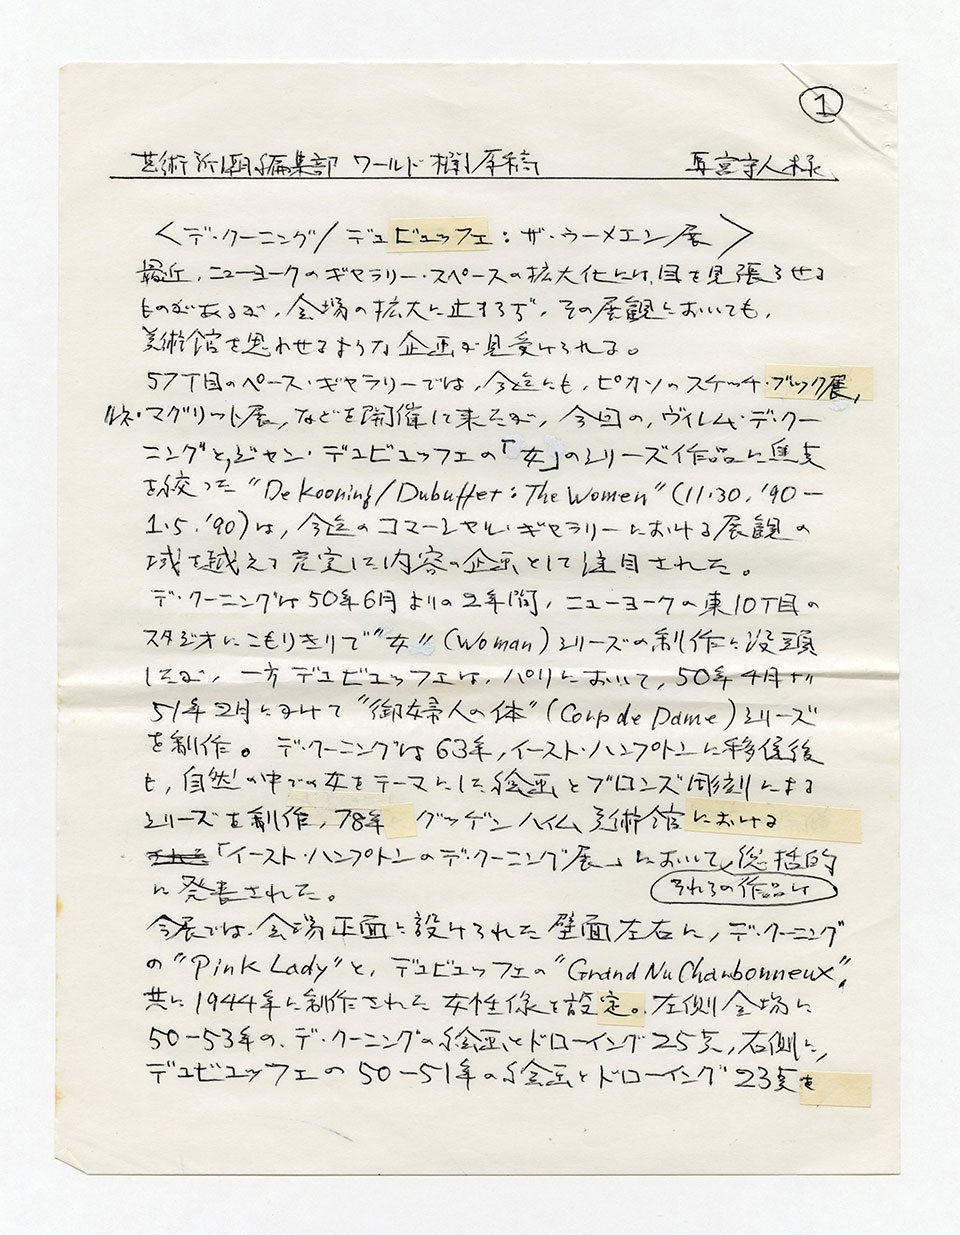 1
芸術新潮編集部 ワールド欄原稿 宮守人様
＜デ・クーニング/デュビュッフェ：ザ・ウーメエン展＞
最近、ニューヨークのギャラリー・スペースの拡大化には、目を見張らせる
ものがあるが、会場の拡大に止まらず、その展観においても、
美術館を思わせるような企画が見受けられる。
57丁目のペース・ギャラリーでは、今迄にも、ピカソのスケッチ・ブック展、
ルネ・マグリット展、などを開催して来たが、今回の、ヴィレム・デ・クー
ニングと、ジャン・デュビュッフェの「女」のシリーズ作品に焦点
を絞った“De Kooning/Dubuffet: The Women”(11.30.'90ー
1.5.'90)は、今迄のコマーシャル・ギャラリーにおける展観の
域を越えて充実した内容の企画として注目された。
デ・クーニングは50年6月よりの2年間、ニューヨークの東10丁目の
スタジオにこもりきりで“女”(Woman)シリーズの制作に没頭
したが、一方デュビュッフェは、パリにおいて、50年4月より
51年2月にかけて“御婦人の体”(Corp de Dame)シリーズ
を制作。デ・クーニングは63年、イースト・ハンプトンに移住後
も、自然の中での女をテーマにした絵画とブロンズ彫刻による
シリーズを制作、78年 グッゲンハイム美術館における
「イースト・ハンプトンのデ・クーニング展」において、総括的
それらの作品は
に発表された。
今展では、会場正面に設けられた壁面左右に、デ・クーニング
の“Pink Lady”と、デュビュッフェの“Grand Nu Charbonneux”、
共に1944年に制作された女性像を設定。左側会場に
50ー53年の、デ・クーニングの絵画とドローイング25点、右側に、
デュビュッフェの50ー51年の絵画とドローイング23点を